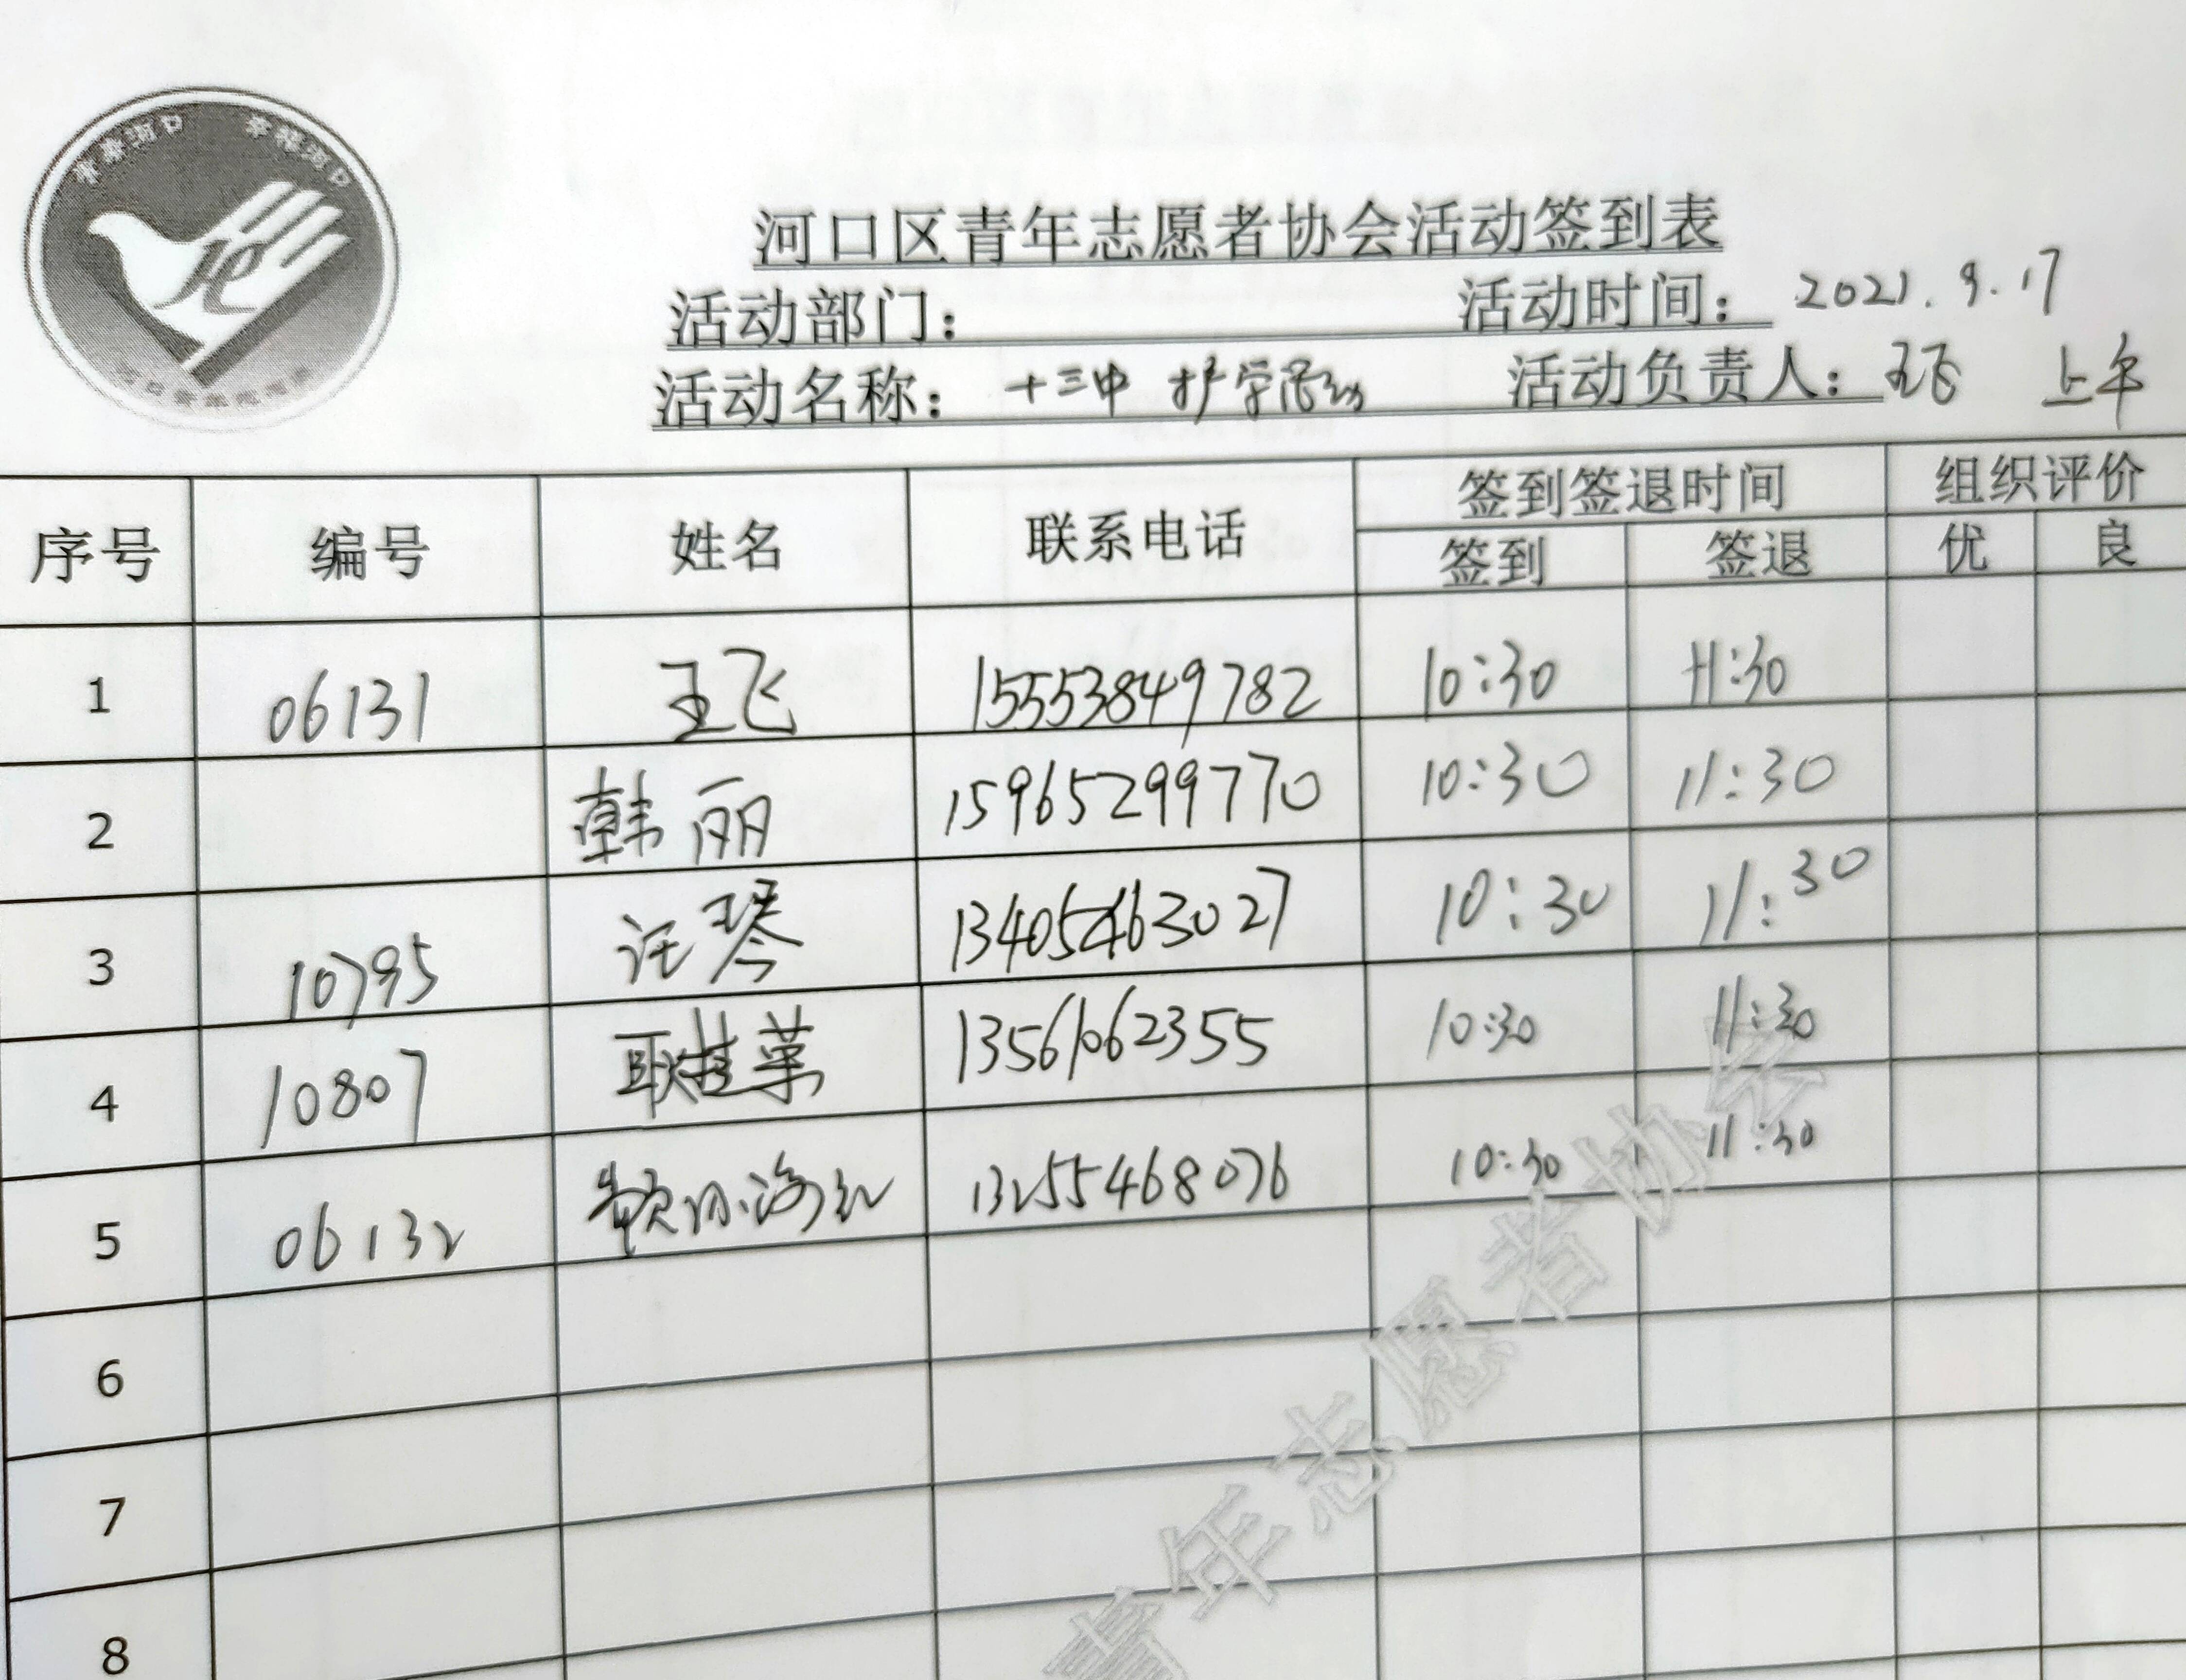 河口区青年志愿者协会活动签到表
活动部门： 活动时间： 2021.9.17
活动名称： 十三中 护学活动 活动负责人： 王飞 上午
序号 编号 姓名 联系电话 签到签退时间 组织评价
签到 签退 优 良
1 06131 王飞 15553849782 10:30 11:30
2 韩丽 15965299770 10:30 11:30
3 10795 汪琴 13405463027 10:30 11:30
4 10807 耿桂英 13561062355 10:30 11:30
5 06132 13255468076 10:30 11:30
6
7
8
青年志愿者协会